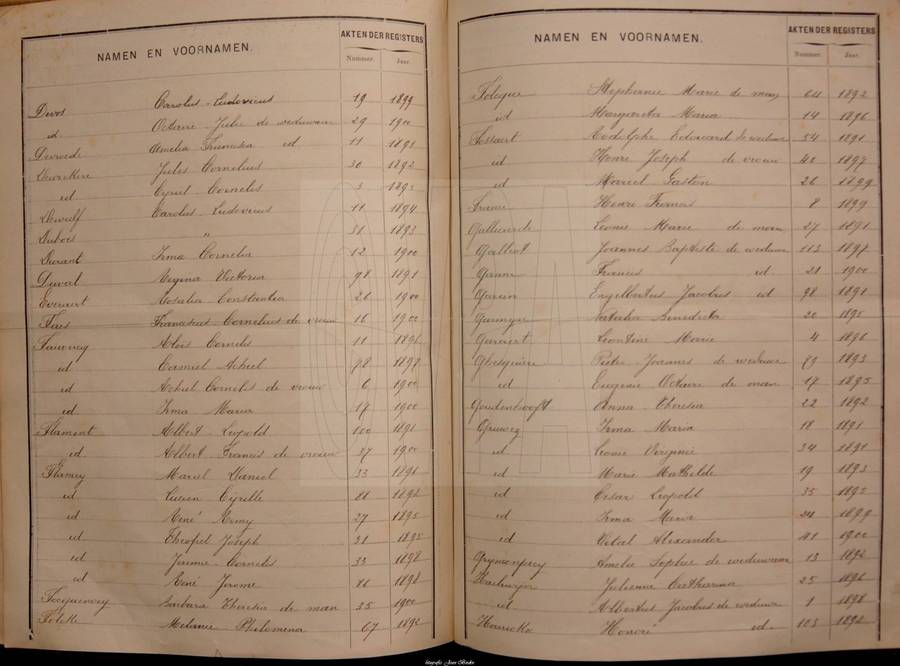 NAMEN EN VOORNAMEN.
AKTEN DER REGISTERS
Nummer. Jaar.
Devos Carolus Ludovicus 19 1899
id Octavie Julie de weduwe 29 1900
Amelia Francisca id 11 1895
Jules Cornelius 30 1892
id Cyriel Cornelis 3 1895
Dewulf Carolus Ludovicus 11 1894
Dubois " 31 1893
Durant Irma Cornelia 12 1900
Duval Regina Victoria 98 1891
Everaert Rosalia Constantia 26 1900
Faes Franciscus Cornelius de vrouw 16 1900
Alois Cornelis 11 1896
id Camiel Achiel 98 1897
id Achiel Cornelis de vrouw 6 1900
id Irma Maria 17 1900
Flament Albert Leopold 100 1891
id Albert Francis de vrouw 37 1900
Flamey Marcel Daniel 33 1891
id Lucien Cyrille 88 1892
id René Remy 27 1895
id Theofiel Joseph 31 1895
id Jerome Cornelis 33 1898
id René Jerome 86 1898
Barbara Theresia de man 35 1900
Melanie Philomena 67 1892
NAMEN EN VOORNAMEN.
AKTEN DER REGISTERS
Nummer. Jaar.
Stephanie Marie de man 64 1892
id Margarita Maria 14 1896
Fossaert Rodolphe Eduward de weduwe 54 1891
id Henri Joseph de vrouw 40 1897
id Marcel Gaston 26 1899
Franc Henri Francis 8 1899
Leonie Marie de man 27 1891
Galliaert Joannes Baptiste de weduwe 113 1897
Ganne Francis id 21 1900
Engelbertus Jacobus id 98 1891
Natalia Benedicta 20 1895
Gareert Leontine Marie 4 1896
Ghesquiere Pieter Joannes de weduwe 89 1893
id Eugenie Octavie de man 17 1895
Goudenhooft Anna Theresia 22 1892
Irma Maria 18 1891
id Leonie Virginie 34 1891
id Marie Mathilde 19 1893
id Cesar Leopold 35 1895
id Irma Maria 24 1899
id Vital Alexander 41 1900
Grymonprey Amelie Sophie de weduwe 13 1892
Julienna Catharina 25 1896
id Albertus Jacobus de weduwe 1 1898
Honoré id. 103 1892